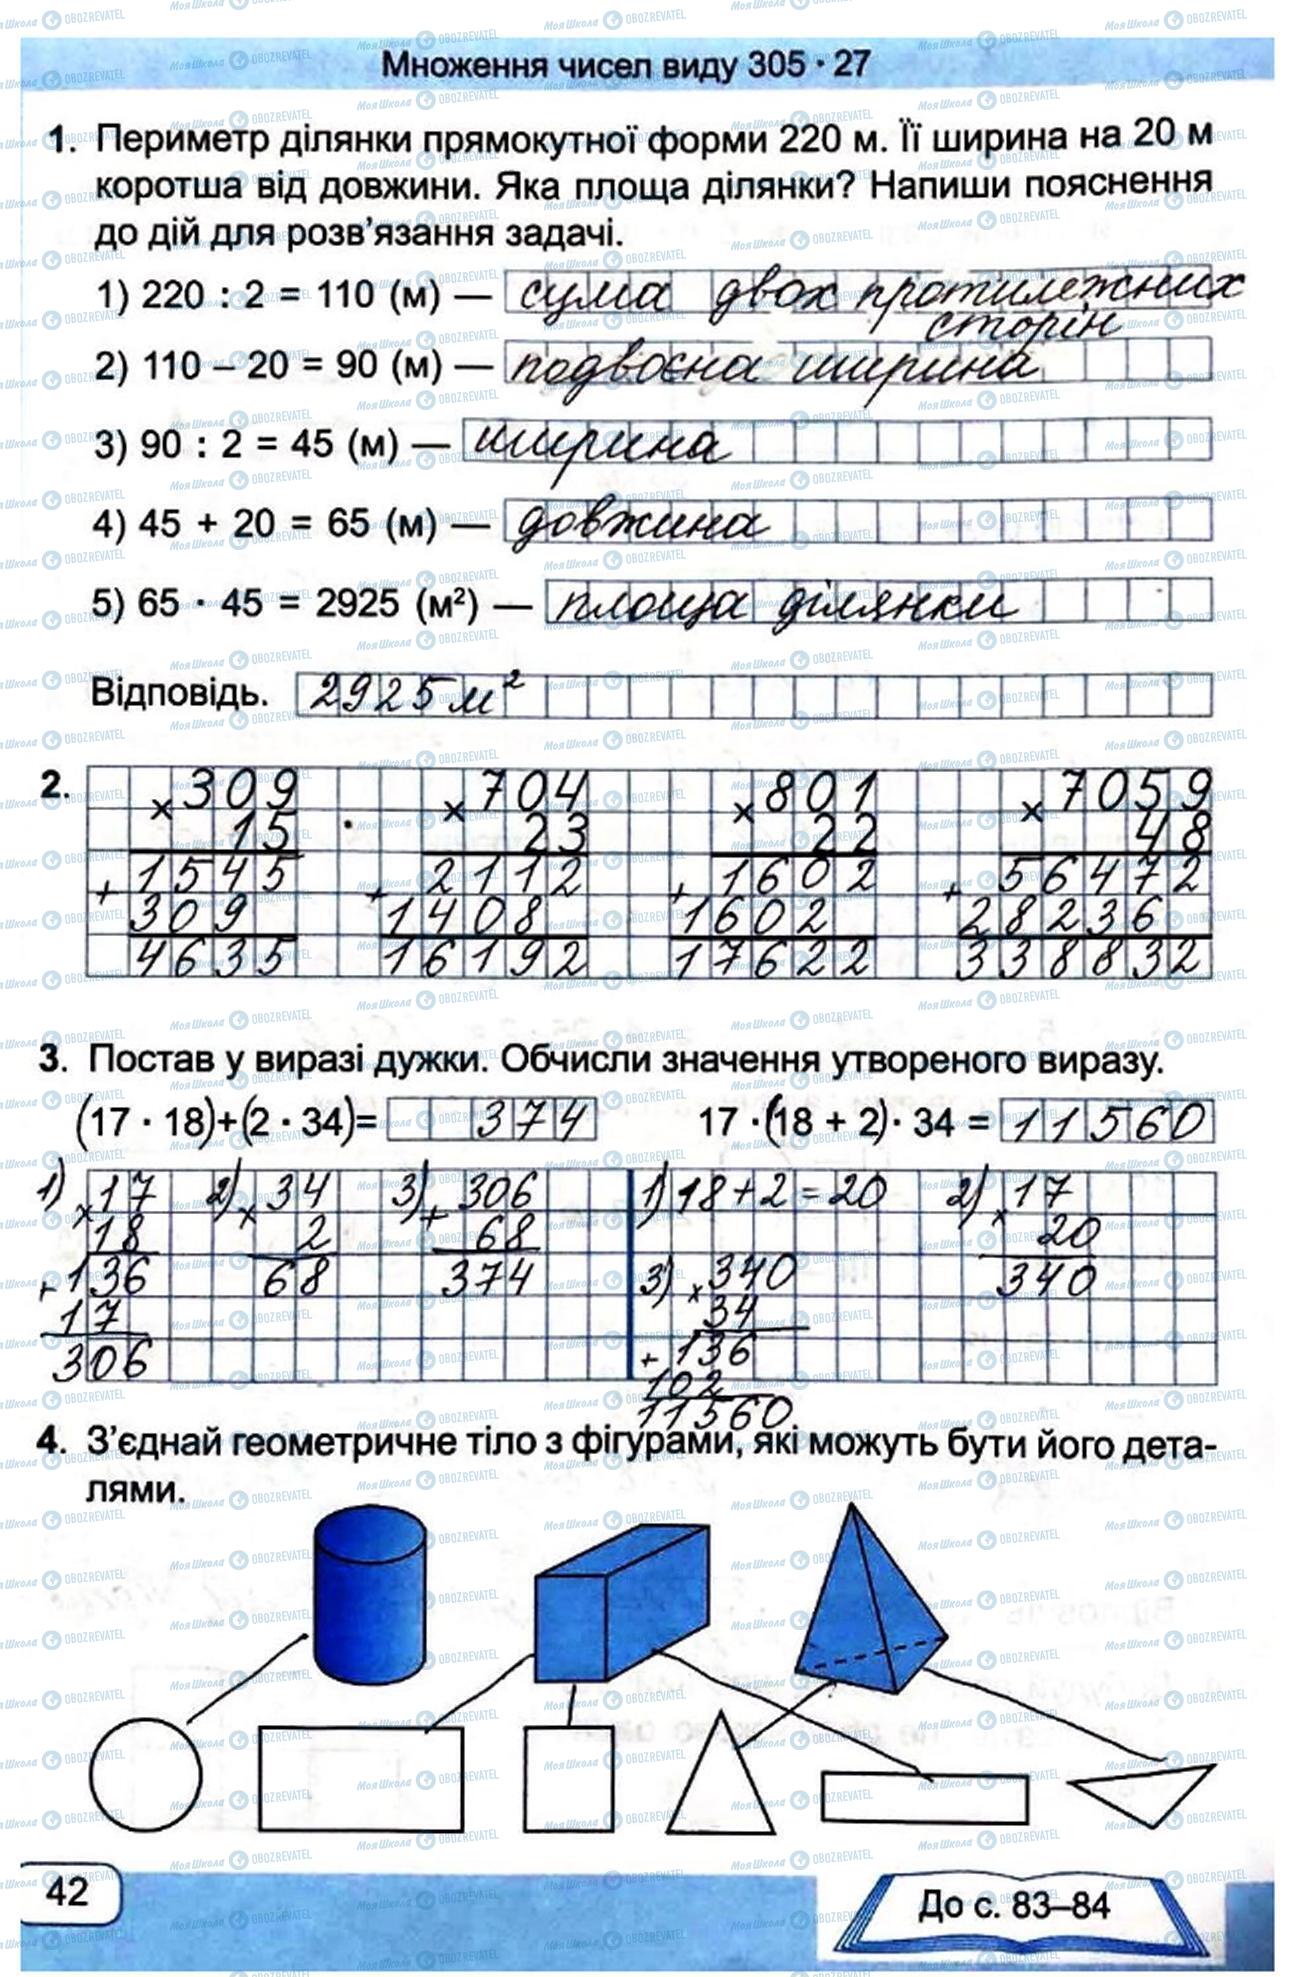 Множення чисел виду 305 · 27
1. Периметр ділянки прямокутної форми 220 м. Її ширина на 20 м
коротша від довжини. Яка площа ділянки? Напиши пояснення
до дій для розв'язання задачі.
1) 220 : 2 = 110 (м) — сума двох протилежних
сторін
2) 110 – 20 = 90 (м) — подвоєна ширина
3) 90 : 2 = 45 (м) — ширина
4) 45 + 20 = 65 (м) — довжина
5) 65 · 45 = 2925 (м²) — площа ділянки
Відповідь. 2925 м²
2. × 309 × 704 × 801 × 7059
15 23 22 48
+ 1545 + 2112 + 1602 + 56472
309 1408 1602 28236
4635 16192 17622 338832
3. Постав у виразі дужки. Обчисли значення утвореного виразу.
(17 · 18)+(2 · 34)= 374 17 ·(18 + 2)· 34 = 11560
1) × 17 2) × 34 3) + 306 1) 18+2=20 2) × 17
18 2 68 20
+ 136 68 374 3) × 340 340
17 34
306 + 136
102
11560
4. З'єднай геометричне тіло з фігурами, які можуть бути його дета-
лями.
42 До с. 83–84
МояШкола OBOZREVATEL